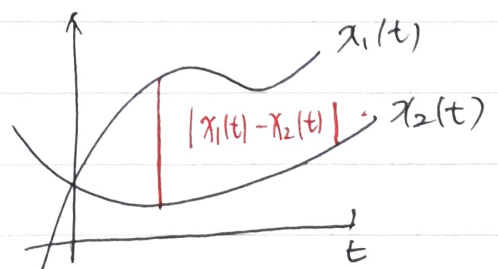 x₁(t)
|x₁(t) - x₂(t)|
x₂(t)
t